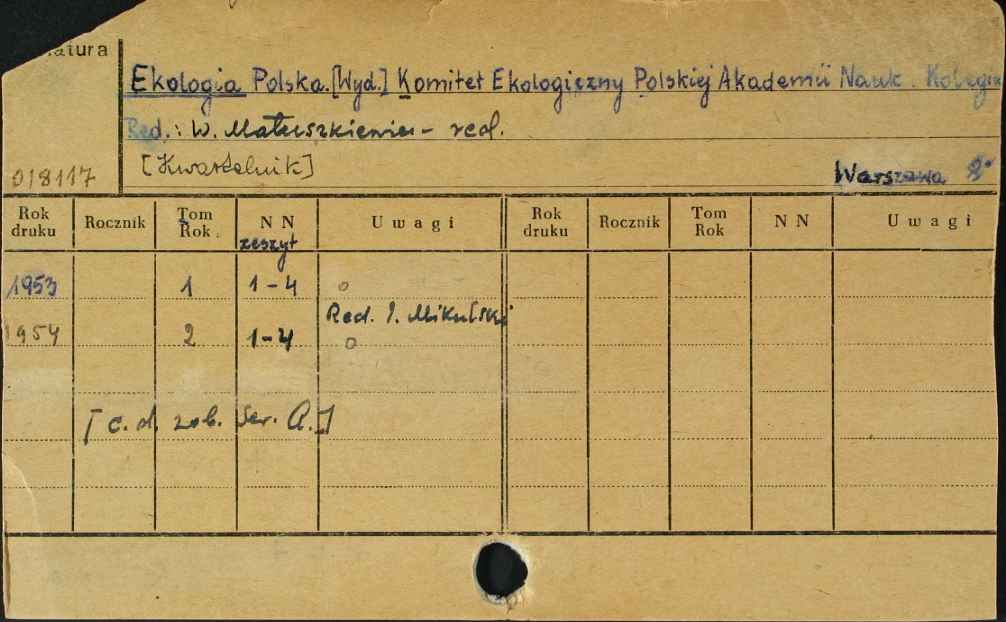 atura
Ekologia Polska. [Wyd.] Komitet Ekologiczny Polskiej Akademii Nauk. Kolegium
Red.: W. Matuszkiewicz - red.
[Kwartalnik]
018117
Warszawa 8°
Rok druku Rocznik Tom Rok. NN zeszyt Uwagi Rok druku Rocznik Tom Rok NN Uwagi
1953 1 1-4 o
Red. J. Mikulski
1954 2 1-4 o
[c. d. zob. Ser. A.]